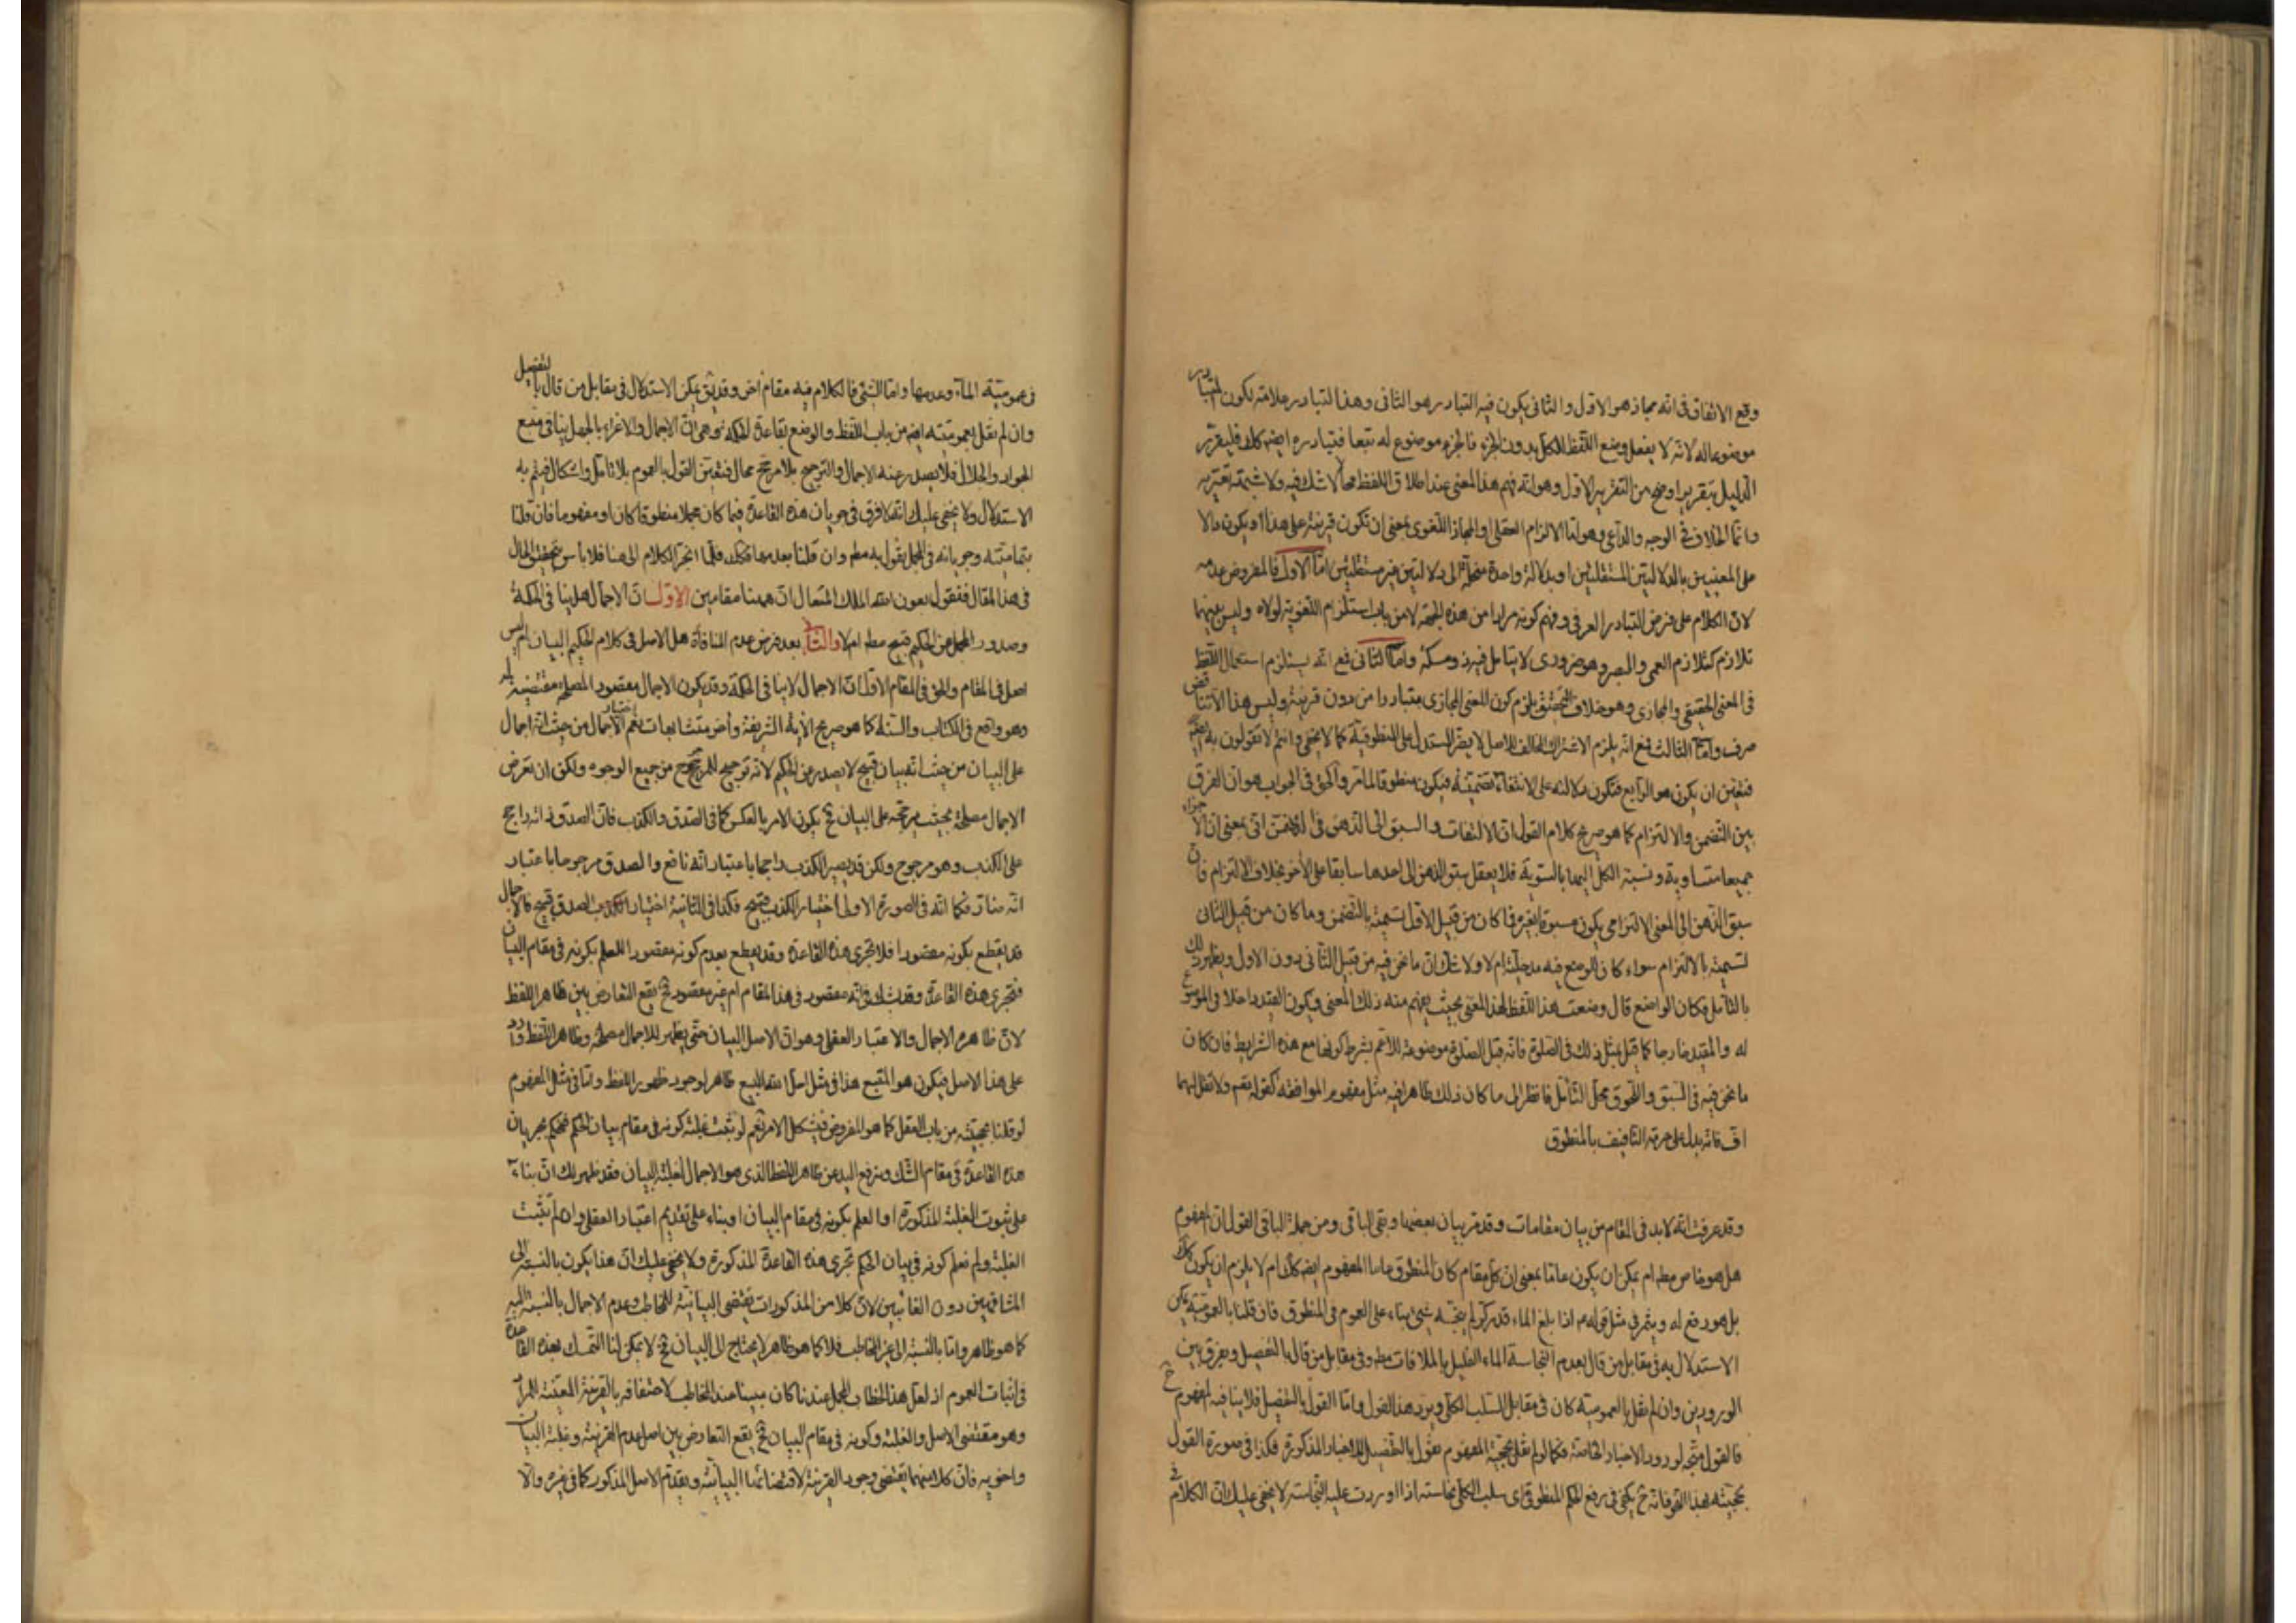 وقع الاتفاق في انه مجاز هو الاول والثاني يكون فيه التبادر هو الثاني وهذا التبادر علامة لكون المتبادر
موضوعا له لانه لا يعقل وضع اللفظ للكل بدون الجزء فالجزء موضوع له تبعا فتبادره ايضا كك فليقرر
الدليل بتقرير اوضح من التقرير الاول وهو انه فهم هذا المعنى عند اطلاق اللفظ مما لا شك فيه ولا شبهة تعتريه
وانما الخلاف في الوجه والداعي وهو اما الالزام العقلي او المجاز اللغوي بمعنى ان تكون قرينة على هذا او يكون دالا
على المعنيين بالدلالتين المستقلتين او بدلالة واحدة منحلة الى دلالتين غير مستقلتين اما الاول فالمفروض عدمه
لان الكلام على فرض التبادر العرفي وفهم كونه مرادا من هذه الجهة لا من باب استلزام اللغوية لولاه وليس بينهما
تلازم كتلازم العمى والبصر وهو ضروري لا يتامل فيه ذو مسكة واما الثاني فمع انه يستلزم استعمال اللفظ
في المعنى الحقيقي والمجازي وهو خلاف التحقيق يلزم كون المعنى المجازي متبادرا من دون قرينة وليس هذا الا تناقض
صرف واما الثالث فمع انه يلزم الاشتراك المخالف للاصل لا يضر المستدل على المنطوقية كما لا يخفى وانتم لا تقولون به ايضا
فتعين ان يكون هو الرابع فتكون دلالته على الانتفاء تضمنية فيكون منطوقا لما مر والحق في الجواب هو ان الفرق
بين التضمن والالتزام كما هو صريح كلام القول ان الالتفات والسبق الى الذهن في التضمن اتى بمعنى ان الاجزاء
جميعا متساوية ونسبة الكل اليها بالسوية فلا يعقل سبق الذهن الى احدها سابقا على الآخر بخلاف الالتزام فان
سبق الذهن الى المعنى الالتزامي يكون مسبوقا بغيره فما كان من قبيل الاول تسميته بالتضمن وما كان من قبيل الثاني
تسميته بالالتزام سواء كان للوضع فيه مدخلية ام لا ولا شك ان ما نحن فيه من قبيل الثاني دون الاول ويظهر ذلك
بالتامل فكان الواضع قال وضعت هذا اللفظ لهذا المعنى بحيث يفهم منه ذلك المعنى فيكون القيد داخلا في الموضوع
له والمقيد خارجا كما قيل مثل ذلك في الصلوة فانه قيل الصلوة موضوعة للاعم بشرط كونها مع هذه الشرايط فان كان
ما نحن فيه في السبق واللحوق محل التامل فانظر الى ما كان ذلك ظاهرا فيه مثل مفهوم الموافقة كقوله تعم ولا تقل لهما
اف فانه يدل على حرمة التافيف بالمنطوق
وقد عرفت انه لا بد في المقام من بيان مقامات وقد مر بيان بعضها وبقي الباقي ومن جملة الباقي القول ان المفهوم
هل هو خاص مطم ام يمكن ان يكون عاما بمعنى ان كل مقام كان المنطوق عاما المفهوم ايضا كك ام لا يلزم ان يكون كك
بل هو رفع له ويثمر في مثل قوله م اذا بلغ الماء قدر كر لم ينجسه شيئ بناء على العموم في المنطوق فان قلنا بالعمومية يمكن
الاستدلال به في مقابل من قال بعدم انجاسة الماء القليل بالملاقات مطم وفي مقابل من قال بالتفصيل ويفرق بين
الورودين وان لم نقل بالعمومية كان في مقابل السلب الكلي ويرد هذا القول واما القول بالتفصيل فلا ينافيه المفهوم ح
فالقول متجه لورود الاخبار الخاصة فكما لو لم نقل بحجية المفهوم نقول بالتفصيل للاخبار المذكورة فكذا في صورة القول
بحجيته بهذا النحو فانه ح يكفي في رفع الحكم المنطوق اي سلب الكلي نجاسته اذا اوردت عليه النجاسة لا يخفى عليك ان الكلام في
في عمومية الماء وعدمها واما الشئ فالكلام فيه مقام آخر وقد يق يمكن الاستدلال في مقابل من قال بالتفصيل
وان لم نقل بعموميته ايضا من باب اللفظ والوضع بقاعدة الحكمة وهي ان الاجمال والاغراء بالجهل ينافي منبع
الجواد والجلال فلا يصدر عنه الاجمال والترجيح بلا مرجح محال فتعين القول بالعموم بلا تامل واشكال فيتم به
الاستدلال ولا يخفى عليك انه لا فرق في جريان هذه القاعدة فيما كان مجملا منطوقا كان او مفهوما فان قلنا
بتماميته وجريانه في المجمل يقول به مطم وان قلنا بعدمها فكك فلما انجر الكلام الى هنا فلا باس بتحقيق الحال
في هذا المقال فنقول بعون الله الملك المتعال ان ههنا مقامين الاول ان الاجمال هل ينافي الحكمة
وصدور المجمل من الحكيم قبيح مطم ام لا والثاني بعد فرض عدم المنافاة هل الاصل في كلام الحكيم البيان ام ليس
اصل في المقام والحق في المقام الاول ان الاجمال لا ينافي الحكمة وقد يكون الاجمال مقصودا لمصلحة مقتضية له
وهو واقع في الكتاب والسنة كما هو صريح الآية الشريفة وأخر متشابهات نعم اختيار الاجمال من حيث انه اجمال
على البيان من حيث انه بيان قبيح لا يصدر من الحكيم لانه ترجيح للمرجوح من جميع الوجوه ولكن ان تعرض
الاجمال مصلحة بحيث يرجحه على البيان ح يكون الامر بالعكس كما في الصدق والكذب فان الصدق في ذاته راجح
على الكذب وهو مرجوح ولكن قد يصير الكذب راجحا باعتبار انه نافع والصدق مرجوحا باعتبار
انه ضار فكما انه في الصورة الاولى اختيار الكذب قبيح فكذا في الثانية اختيار الصدق قبيح فالاجمال
قد يقطع بكونه مقصودا فلا تجري هذه القاعدة وقد يقطع بعدم كونه مقصودا للعلم بكونه في مقام البيان
فتجري هذه القاعدة وقد يشك في انه مقصود في هذا المقام ام غير مقصود ح يقع التعارض بين ظاهر اللفظ
لان ظاهره الاجمال والاعتبار العقلي وهو ان الاصل البيان حتى يظهر للاجمال مصلحة وظاهر اللفظ وارد
على هذا الاصل فيكون هو المتبع هذا في مثل احل الله البيع ظاهر لوجود ظهور اللفظ واما في مثل المفهوم
لو قلنا بحجيته من باب العقل كما هو المفروض فيشكل الامر نعم لو ثبت غلبة كونه في مقام بيان الحكم فيحكم بجريان
هذه القاعدة في مقام الشك ويرفع اليد عن ظاهر اللفظ الذي هو الاجمال لغلبة البيان فقد ظهر لك ان بناء
على ثبوت الغلبة المذكورة او العلم بكونه في مقام البيان او بناء على تقديم اعتبار العقلي وان لم تثبت
الغلبة ولم نعلم كونه في بيان الحكم تجري هذه القاعدة المذكورة ولا يخفى عليك ان هذا يكون بالنسبة الى
المشافهين دون الغائبين لان كلا من المذكورات يقتضي البيانية للمخاطب وعدم الاجمال بالنسبة اليه
كما هو ظاهر واما بالنسبة الى غير المخاطب فلا كما هو ظاهر لا يحتاج الى البيان ح لا يمكن لنا التمسك بهذه القاعدة
في اثبات العموم اذ لعل هذا الخطاب المجمل عندنا كان مبينا عند المخاطب لاحتفافه بالقرينة المعينة للمراد
وهو مقتضى الاصل والغلبة وكونه في مقام البيان ح يقع التعارض بين اصل عدم القرينة وغلبة البيان
واخويه فان كلا منهما يقتضي وجود القرينة لاقتضائها البيانية ويقدم الاصل المذكور كما في غيره والا